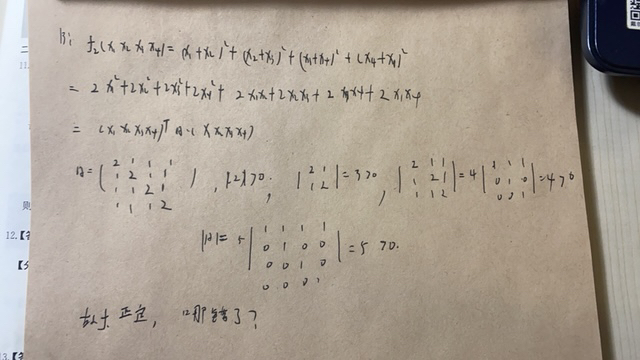 解: f₂(x₁ x₂ x₃ x₄) = (x₁+x₂)² + (x₂+x₃)² + (x₃+x₄)² + (x₄+x₁)²
= 2x₁²+2x₂²+2x₃²+2x₄²+ 2x₁x₂+2x₂x₃+2x₃x₄+2x₁x₄
= (x₁ x₂ x₃ x₄)ᵀ A·(x₁ x₂ x₃ x₄)
A= ( 2 1 1 1 ; 1 2 1 1 ; 1 1 2 1 ; 1 1 1 2 ) , |2|>0. , | 2 1 ; 1 2 | = 3>0 , | 2 1 1 ; 1 2 1 ; 1 1 2 | = 4 | 1 1 1 ; 0 1 0 ; 0 0 1 | = 4>0
|A|= 5 | 1 1 1 1 ; 0 1 0 0 ; 0 0 1 0 ; 0 0 0 1 | = 5 >0.
故f₂正定, 哪错了?
12.【
【分